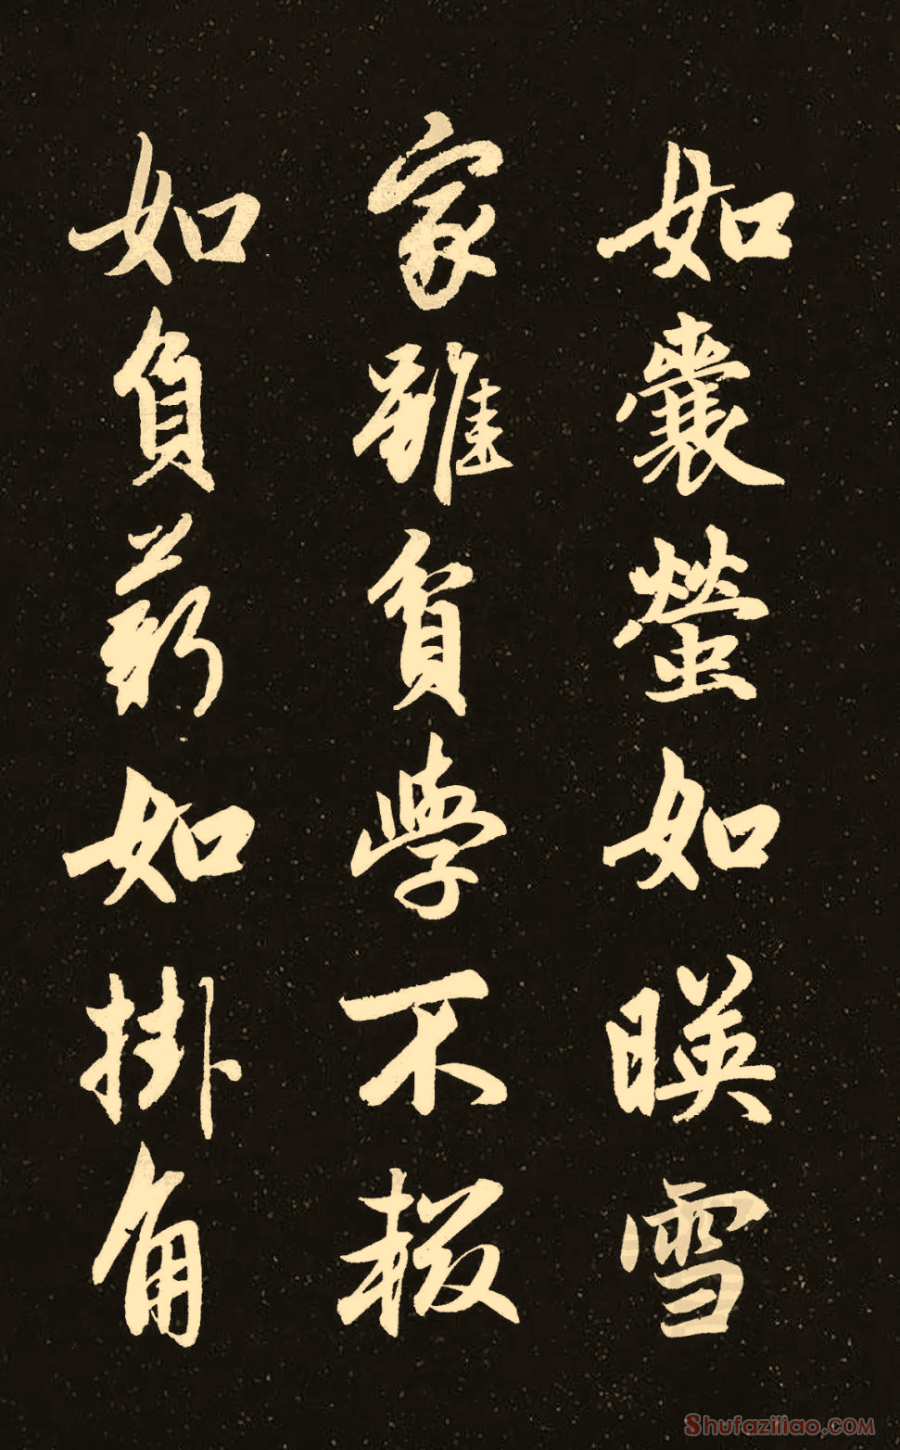 如囊螢如暎雪
家雖貧學不輟
如負薪如掛角
Shufaziliao.COM